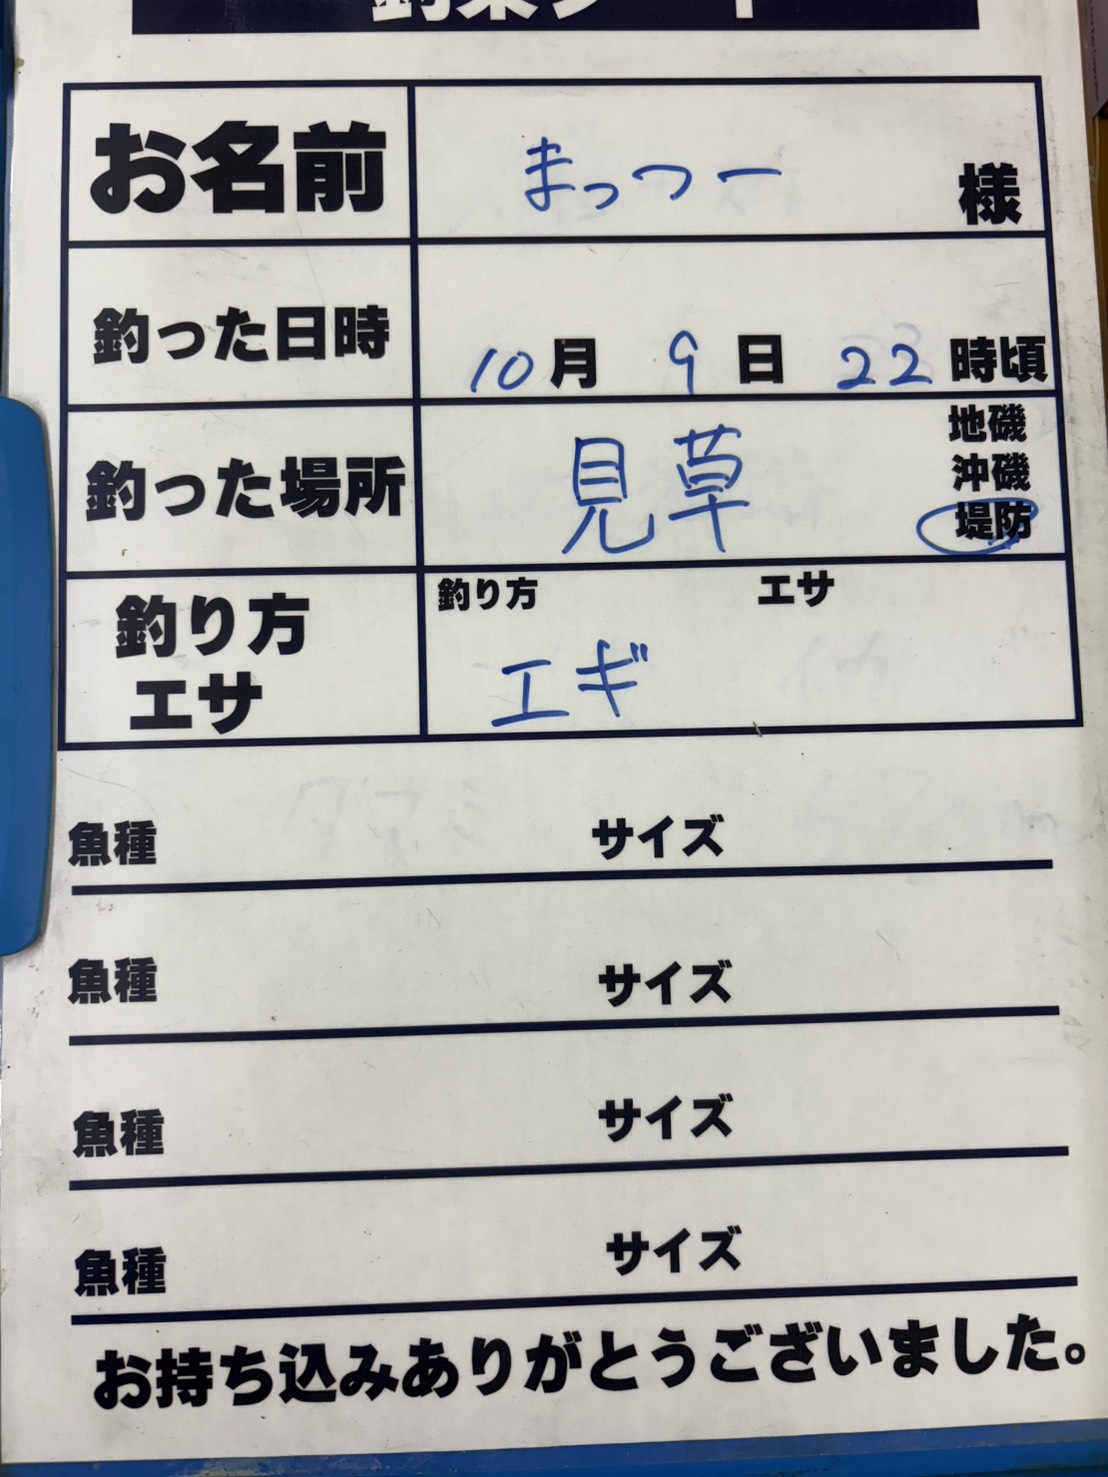 お名前 まっつー 様
釣った日時 10月 9日 22時頃
釣った場所 見草 地磯
沖磯
堤防
釣り方
エサ
釣り方 エサ
エギ
魚種 サイズ
魚種 サイズ
魚種 サイズ
魚種 サイズ
お持ち込みありがとうございました。